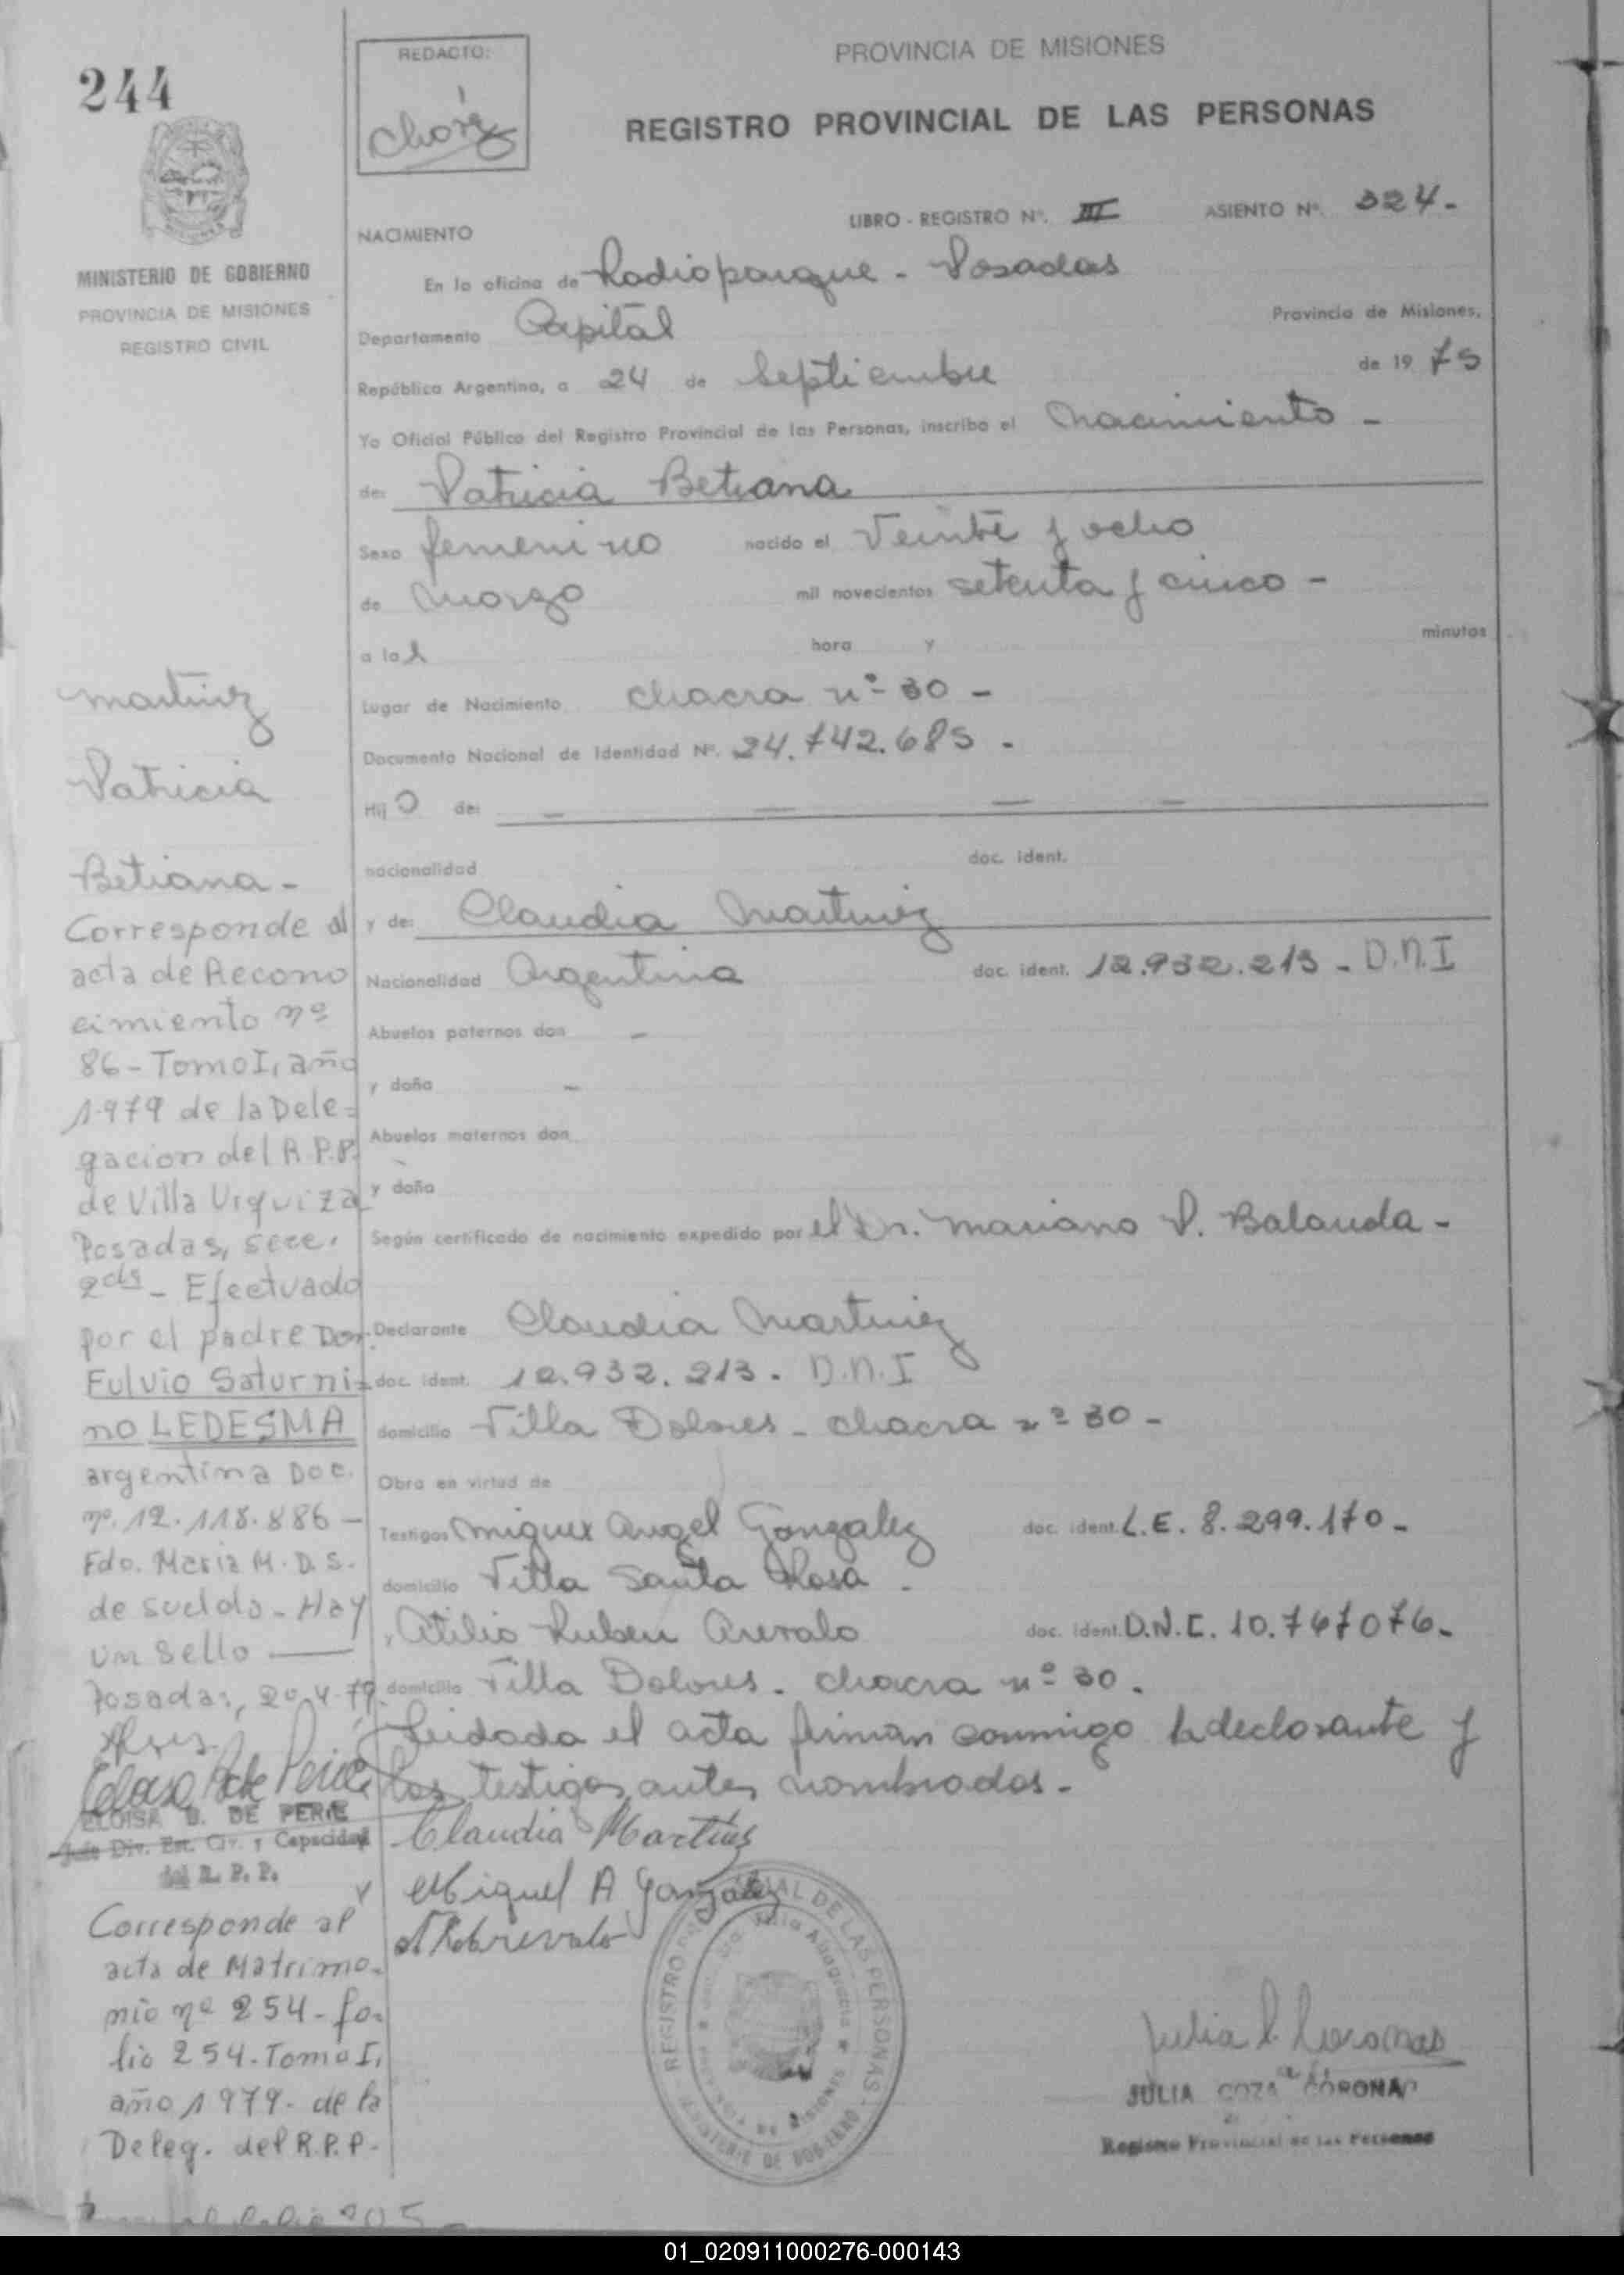 244
REDACTO:
MINISTERIO DE GOBIERNO
PROVINCIA DE MISIONES
REGISTRO CIVIL
PROVINCIA DE MISIONES
REGISTRO PROVINCIAL DE LAS PERSONAS
NACIMIENTO LIBRO - REGISTRO Nº. III ASIENTO Nº. 324-
En la oficina de Radioparque - Posadas
Departamento Capital Provincia de Misiones,
República Argentina, a 24 de Septiembre de 19 75
Yo Oficial Público del Registro Provincial de las Personas, inscribo el Nacimiento -
de: Patricia Betiana
Sexo femenino nacido el Veinte y ocho
de Marzo mil novecientos setenta y cinco -
a la hora y minutos
Lugar de Nacimiento chacra nº 30 -
Documento Nacional de Identidad Nº. 24.742.685 -
Hij de: — — — —
nacionalidad doc. ident.
y de: Claudia Martinez
Nacionalidad Argentina doc. ident. 12.932.213 - D.N.I
Abuelos paternos don -
y doña -
Abuelos maternos don
y doña
Según certificado de nacimiento expedido por el Dr. Mariano P. Balanda -
Declarante Claudia Martinez
doc. ident. 12.932.213. D.N.I
domicilio Villa Dolores - chacra nº 30 -
Obra en virtud de
Testigos Miguel Angel Gonzalez doc. ident. L.E. 8.299.170 -
domicilio Villa Santa Rosa -
Atilio Ruben Arevalo doc. ident. D.N.I. 10.767076-
domicilio Villa Dolores - chacra nº 30 .
Leidada el acta firman conmigo la declarante y
los testigos antes nombrados -
Claudia Martinez
Miguel A Gonzalez
Martinez
Patricia
Betiana -
Corresponde al
acta de Recono
cimiento nº
86 - Tomo I, año
1.979 de la Dele=
gacion del R.P.P.
de Villa Urquiza
Posadas, secc.
2da - Efectuado
por el padre Don
Fulvio Saturni=
no LEDESMA
argentina Doc.
nº. 12.118.886 -
Fdo. Maria M. D. S.
de sueldo - Hay
un sello —
Posadas, 20-4-79
ELOISA B. DE PERIE
Jefe Div. Est. Civ. y Capacidad
del R. P. P.
Corresponde al
acta de Matrimo-
nio nº 254 - fo-
lio 254 - Tomo I,
año 1979 - de la
Deleg. del R.P.P-
REGISTRO PROVINCIAL DE LAS PERSONAS
MINISTERIO DE GOBIERNO
PROVINCIA DE MISIONES
JULIA CORONA
Registro Provincial de las Personas
01_020911000276-000143